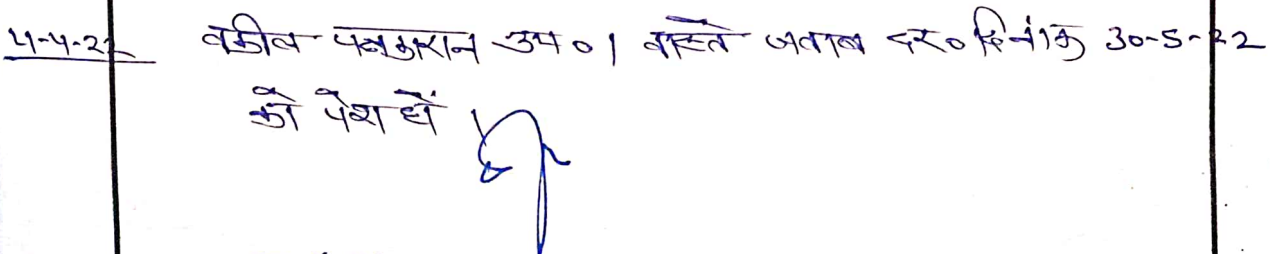 4-4-22 वकील पक्षकारान उप०। वास्ते जवाब दर० दिनांक 30-5-22
को पेश हों